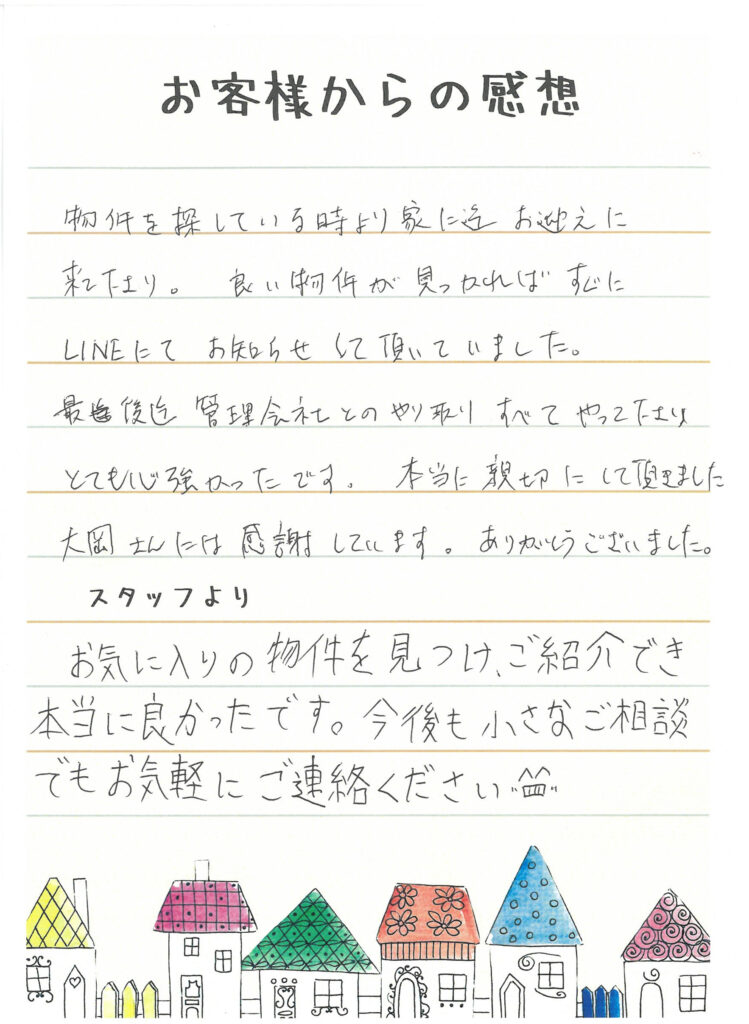 お客様からの感想
物件を探している時より家に迄 お迎えに
来てたまり。 良い物件が見つかれば すぐに
LINEにて お知らせ して頂いていました。
最後迄 管理会社とのやり取り すべて やってたまり
とても心強かったです。 本当に親切にして頂きました
大岡さんには感謝しています。ありがとうございました。
スタッフより
お気に入りの物件を見つけ、ご紹介でき
本当に良かったです。今後も小さなご相談
でもお気軽にご連絡ください